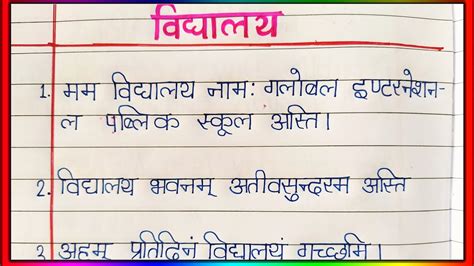 विद्यालय
1. मम विद्यालय नाम: गलोबल इण्टरनेशन-
ल पब्लिक स्कूल अस्ति।
2. विद्यालय भवनम् अतीवसुन्दरम अस्ति
3 अहम् प्रतिदिनं विद्यालयं गच्छामि।